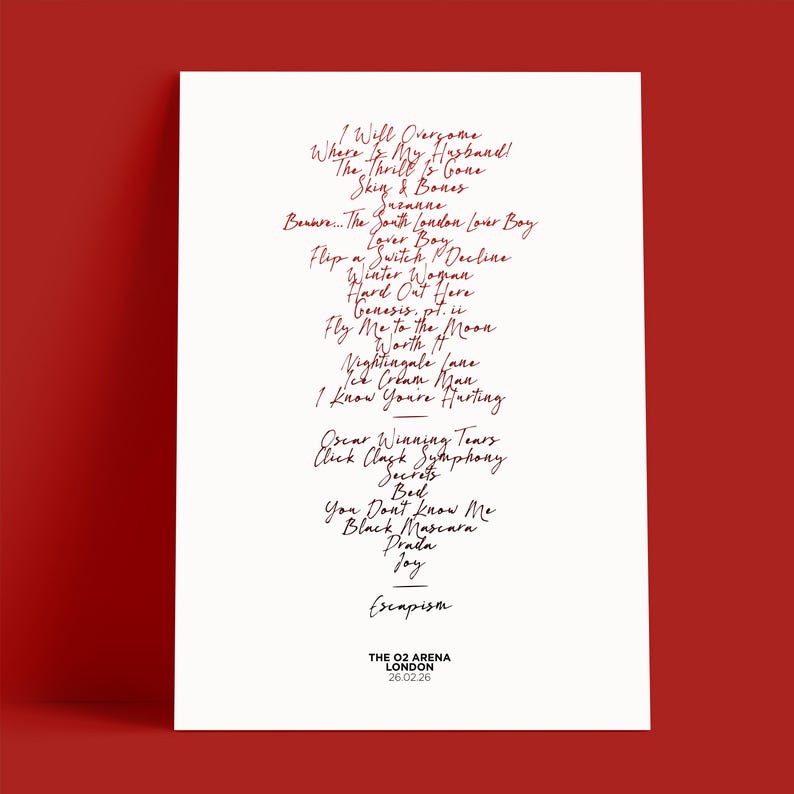 I Will Overcome
Where Is My Husband!
The Thrill Is Gone
Skin & Bones
Suzanne
Beware... The South London Lover Boy
Lover Boy
Flip a Switch / Decline
Winter Woman
Hard Out Here
Genesis, pt. ii
Fly Me to the Moon
Worth It
Nightingale Lane
Ice Cream Man
I Know You're Hurting
Oscar Winning Tears
Click Clack Symphony
Secrets
Bed
You Don't Know Me
Black Mascara
Prada
Joy
Escapism
THE O2 ARENA
LONDON
26.02.26